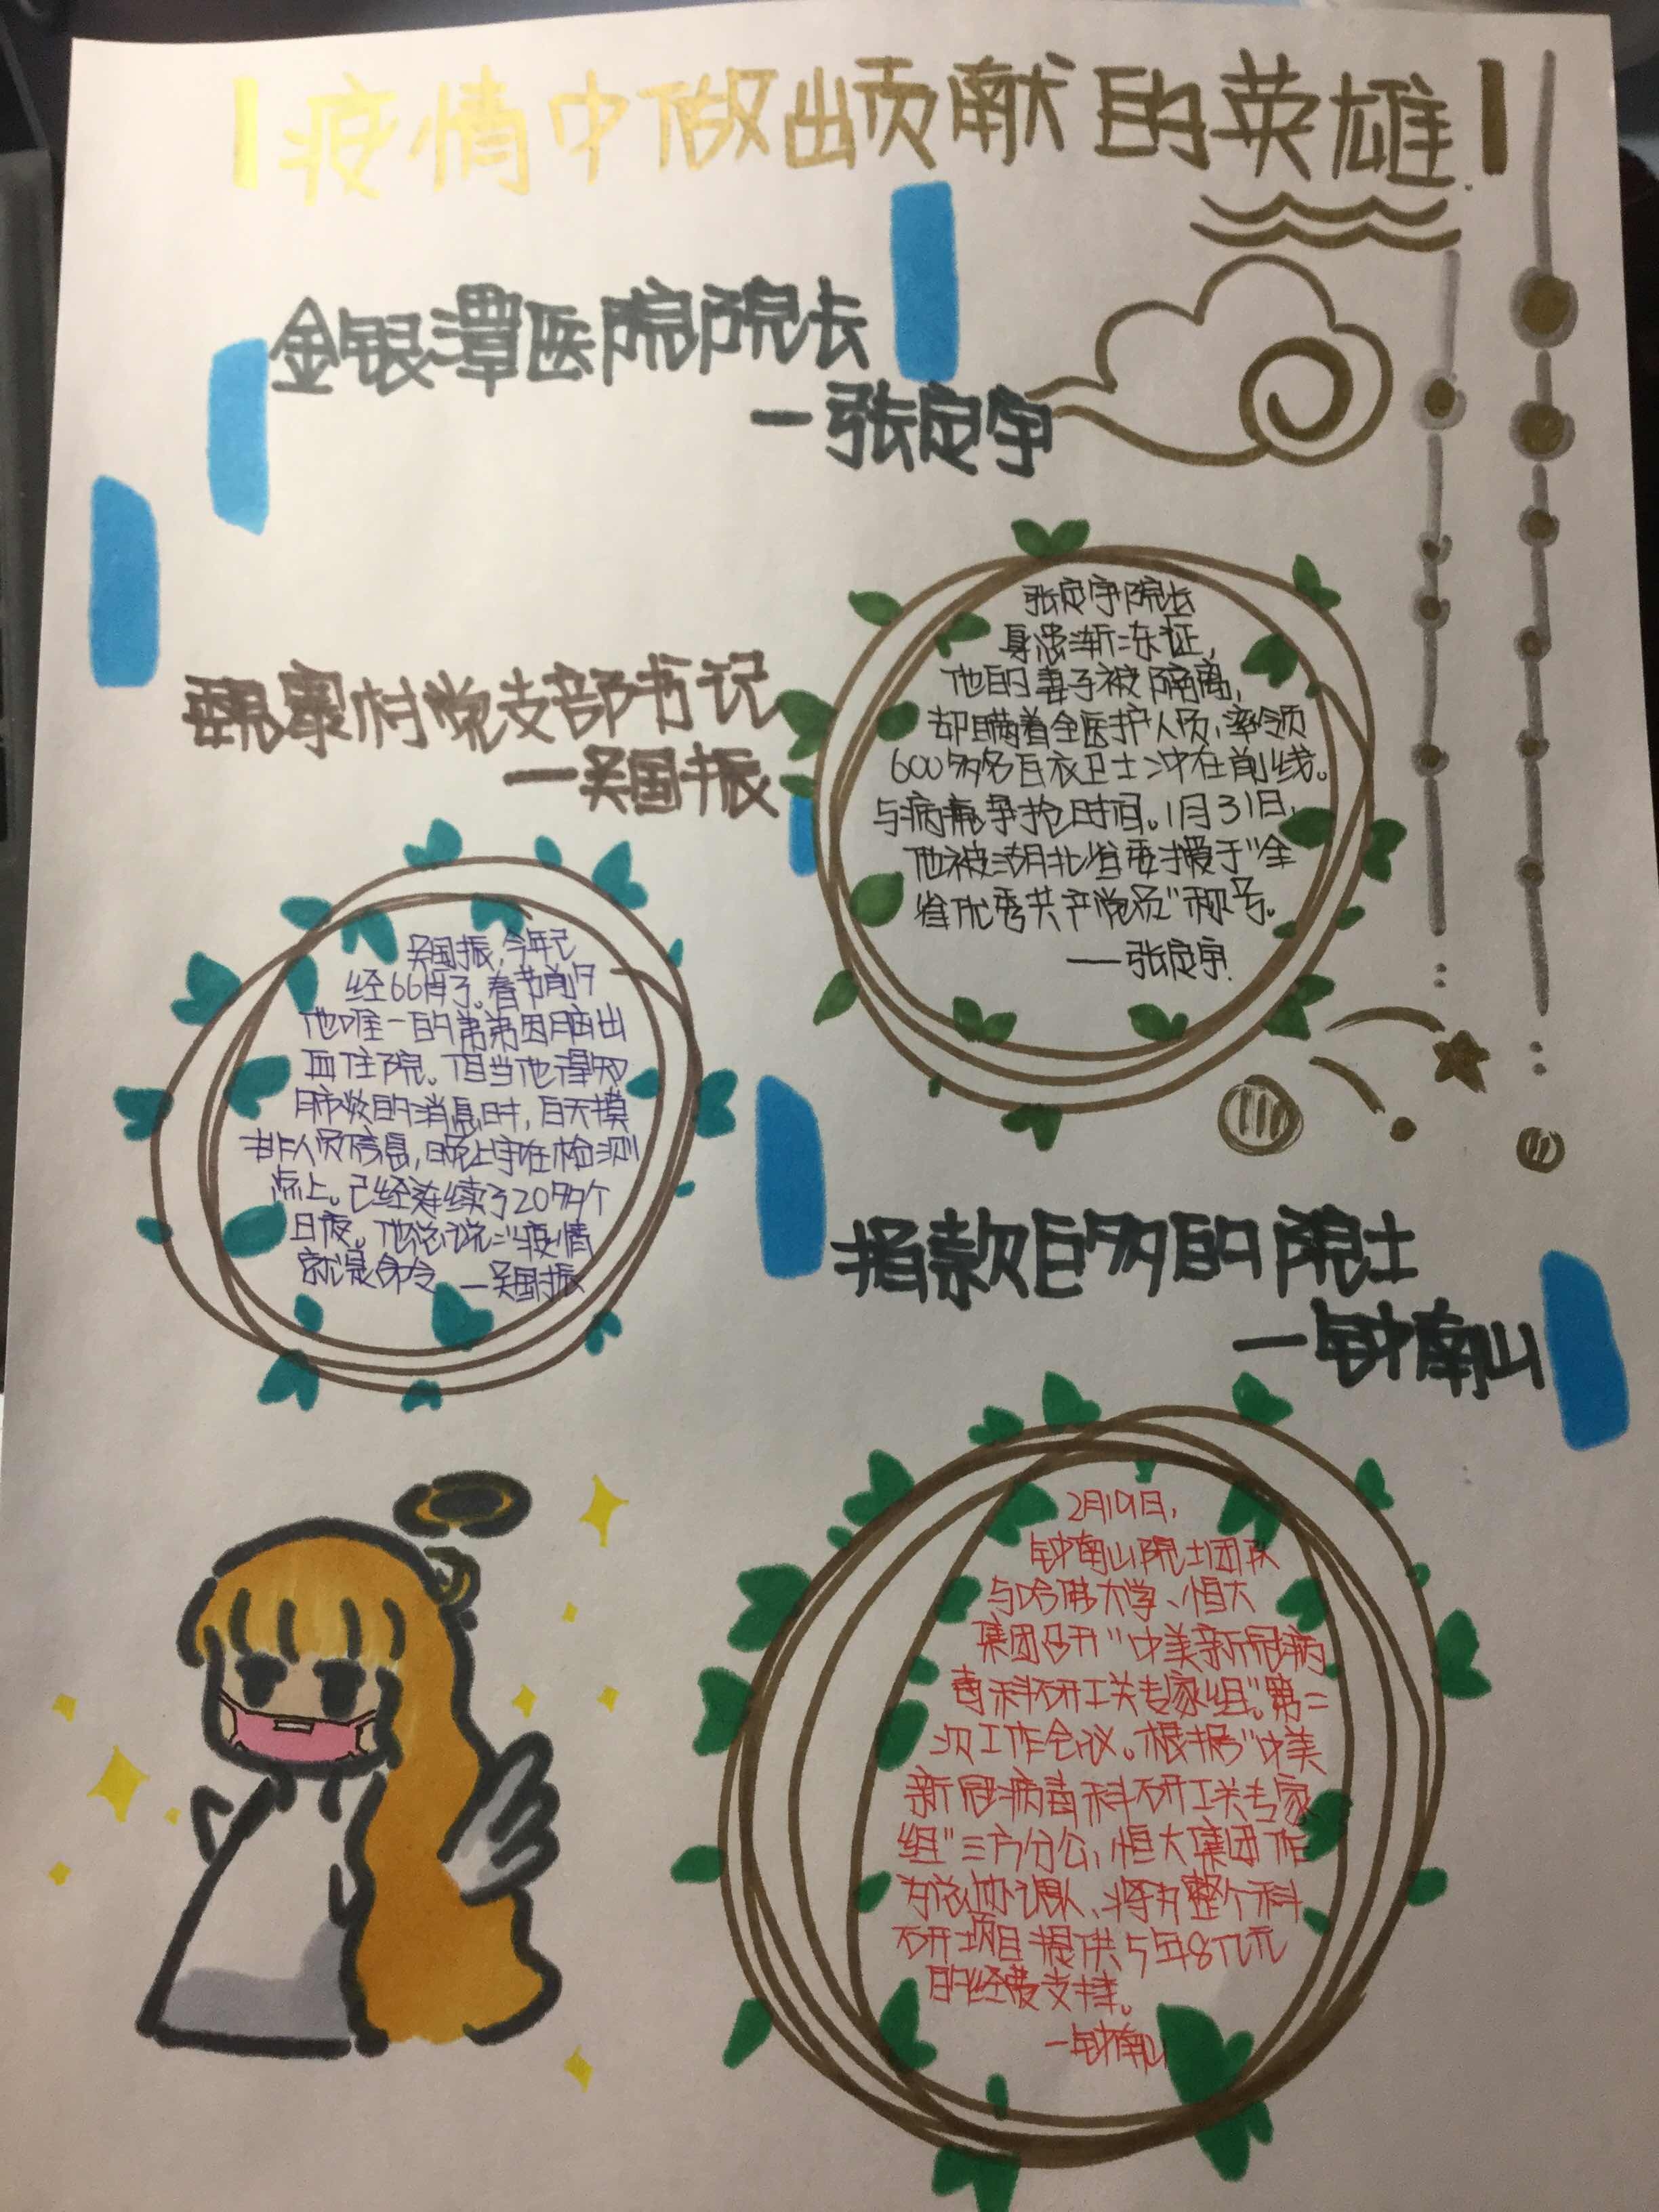 疫情中做出贡献的英雄
金银潭医院院长
一张定宇
张定宇院长
身患渐冻症,
他的妻子被隔离,
却瞒着全医护人员,率领
600多名白衣卫士冲在前线。
与病魔争抢时间。1月31日,
他被湖北省委授于“全
省优秀共产党员”称号。
——张定宇.
魏寨村党支部书记
一吴国振
吴国振,今年已
经66岁了。春节前夕
他唯一的弟弟因脑出
血住院。但当他得知
肺炎的消息时,白天摸
排人员信息,晚上守在检测
点上。已经连续了20多个
日夜。他总说:“疫情
就是命令 一吴国振
捐款巨多的院士
一钟南山
2月19日,
钟南山院士团队
与哈佛大学、恒大
集团召开“中美新冠病
毒科研攻关专家组”第二
次工作会议。根据“中美
新冠病毒科研攻关专家
组”三方分公,恒大集团作
为总协调队、将为整个科
研项目提供5年8亿元
的经费支持。
一钟南山